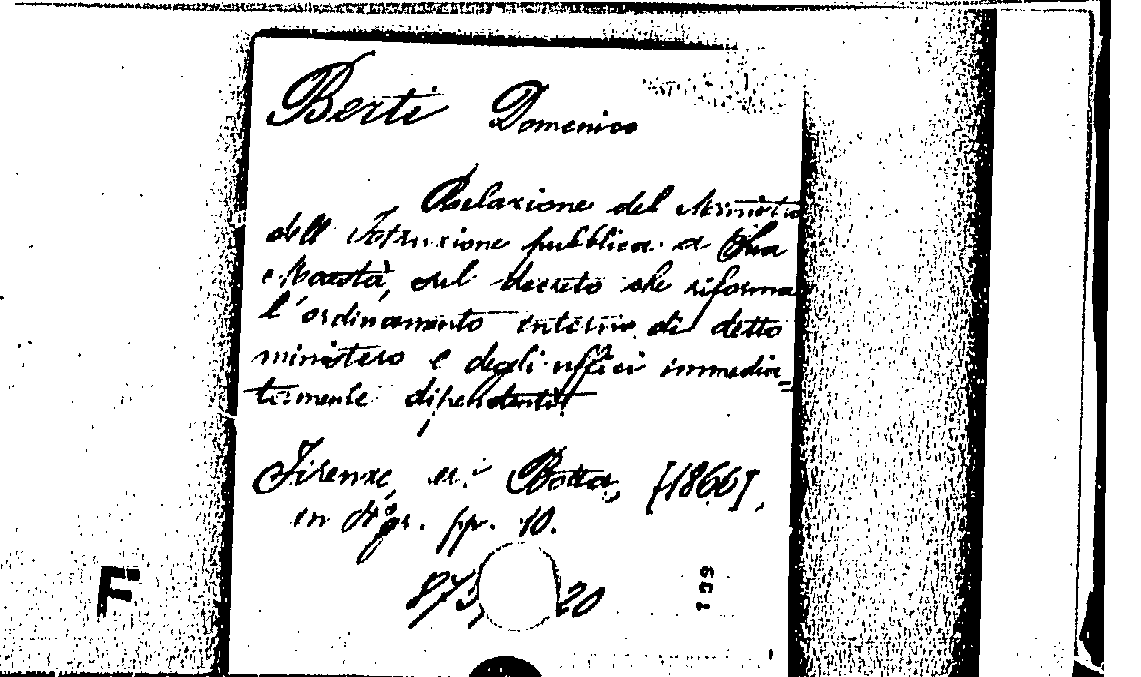 Berti Domenico
Relazione del Ministro
dell' Istruzione pubblica a Sua
Maestà, sul decreto che riforma
l'ordinamento interno di detto
ministero e degli uffici immedia=
tamente dipendenti
Firenze, er. Botta, [1866],
in 4° gr. pp. 10.
873, 20
199
F